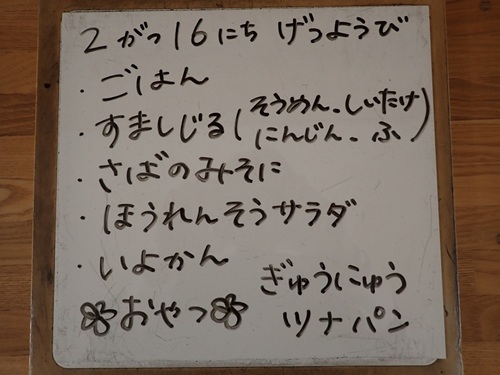 2がつ16にち げつようび
・ごはん
・すましじる(そうめん、しいたけ
にんじん、ふ)
・さばのみそに
・ほうれんそうサラダ
・いよかん
おやつ ぎゅうにゅう
ツナパン